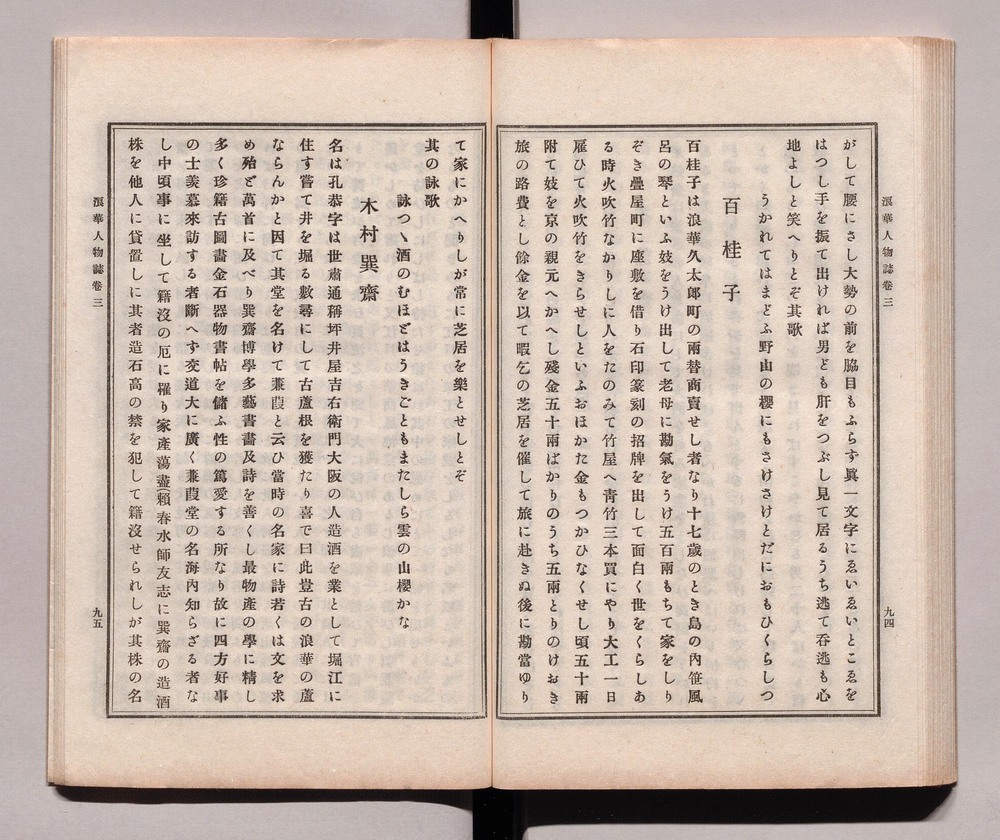 浪華人物誌卷三
九四
がして腰にさし大勢の前を脇目もふらす眞一文字にゑいゑいとこゑを
はつし手を振て出ければ男ども肝をつぶし見て居るうち逃て呑逃も心
地よしと笑へりとぞ其歌
うかれてはまどふ野山の櫻にもさけさけとだにおもひくらしつ
百桂子
百桂子は浪華久太郎町の兩替商賣せし者なり十七歲のとき島の內笹風
呂の琴といふ妓をうけ出して老母に勘氣をうけ五百兩もちて家をしり
ぞき疊屋町に座敷を借り石印篆刻の招牌を出して面白く世をくらしあ
る時火吹竹なかりしに人をたのみて竹屋へ靑竹三本買にやり大工一日
雇ひて火吹竹をきらせしといふおほかた金もつかひなくせし頃五十兩
附て妓を京の親元へかへし殘金五十兩ばかりのうち五兩とりのけおき
旅の路費とし餘金を以て暇乞の芝居を催して旅に赴きぬ後に勘當ゆり
て家にかへりしが常に芝居を樂とせしとぞ
其の詠歌
詠つゝ酒のむほどはうきごともまたしら雲の山櫻かな
木村巽齋
名は孔恭字は世肅通稱坪井屋吉右衛門大阪の人造酒を業として堀江に
住す嘗て井を堀る數尋にして古蘆根を獲たり喜で曰此豈古の浪華の蘆
ならんかと因て其堂を名けて蒹葭と云ひ當時の名家に詩若くは文を求
め殆ど萬首に及べり巽齋博學多藝書畫及詩を善くし最物產の學に精し
多く珍籍古圖畫金石器物書帖を儲ふ性の篤愛する所なり故に四方好事
の士羡慕來訪する者斷へす交道大に廣く蒹葭堂の名海內知らざる者な
し中頃事に坐して籍沒の厄に罹り家產蕩盡賴春水師友志に巽齋の造酒
株を他人に貸置しに其者造石高の禁を犯して籍沒せられしが其株の名
浪華人物誌卷三
九五